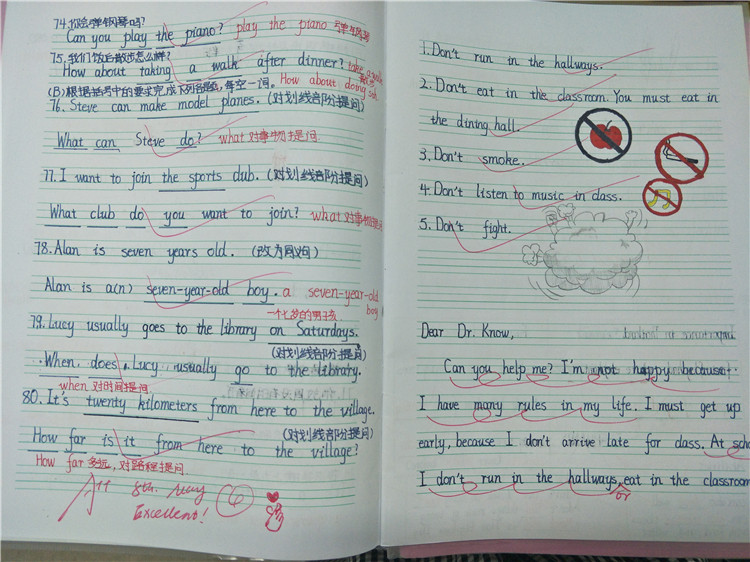 74.你会弹钢琴吗?
Can you play the piano? play the piano 弹钢琴
75.我们饭后散步怎么样?
How about taking a walk after dinner? take a walk
How about doing sth
(B)根据括号中的要求完成下列各题,每空一词。
76. Steve can make model planes. (对划线部分提问)
What can Steve do? what对事物提问
77. I want to join the sports club. (对划线部分提问)
What club do you want to join? what对事物提问
78. Alan is seven years old. (改为同义句)
Alan is a(n) seven-year-old boy. a seven-year-old boy
一个七岁的男孩
79. Lucy usually goes to the library on Saturdays.
(对划线部分提问)
When does Lucy usually go to the library.
when 对时间提问
80. It's twenty kilometers from here to the village.
(对划线部分提问)
How far is it from here to the village?
How far 多远,对路程提问
A+ 8th. May
Excellent! 6
1. Don't run in the hallways.
2. Don't eat in the classroom. You must eat in
the dining hall.
3. Don't smoke.
4. Don't listen to music in class.
5. Don't fight.
Dear Dr. Know,
Can you help me? I'm not happy because
I have many rules in my life. I must get up
early, because I don't arrive late for class. At sch
I don't run in the hallways, eat in the classroom
or